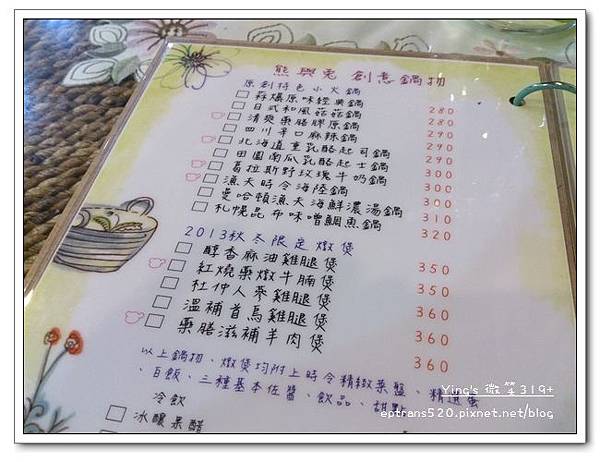 熊與兔 創意鍋物
原創特色小火鍋
蒜爆原味經典鍋 280
日式和風菇菇鍋 280
清爽藥膳胖原鍋 290
四川辛口麻辣鍋 290
北海道重乳酪起司鍋 290
田園南瓜乳酪起士鍋 300
葛拉斯野玫瑰牛奶鍋 300
漁天時令海陸鍋 300
曼哈頓漁夫海鮮濃湯鍋 310
札幌昆布味噌鯛魚鍋 320
2013秋冬限定燉煲
醇香麻油雞腿煲 350
紅燒藥燉牛腩煲 350
杜仲人蔘雞腿煲 360
溫補首烏雞腿煲 360
藥膳滋補羊肉煲 360
以上鍋物、燉煲均附上時令精緻菜盤、精選蛋
、白飯、三種基本佐醬、飲品、甜點
冷飲
冰釀果醋
Ying's 微笑319+
eptrans520.pixnet.net/blog